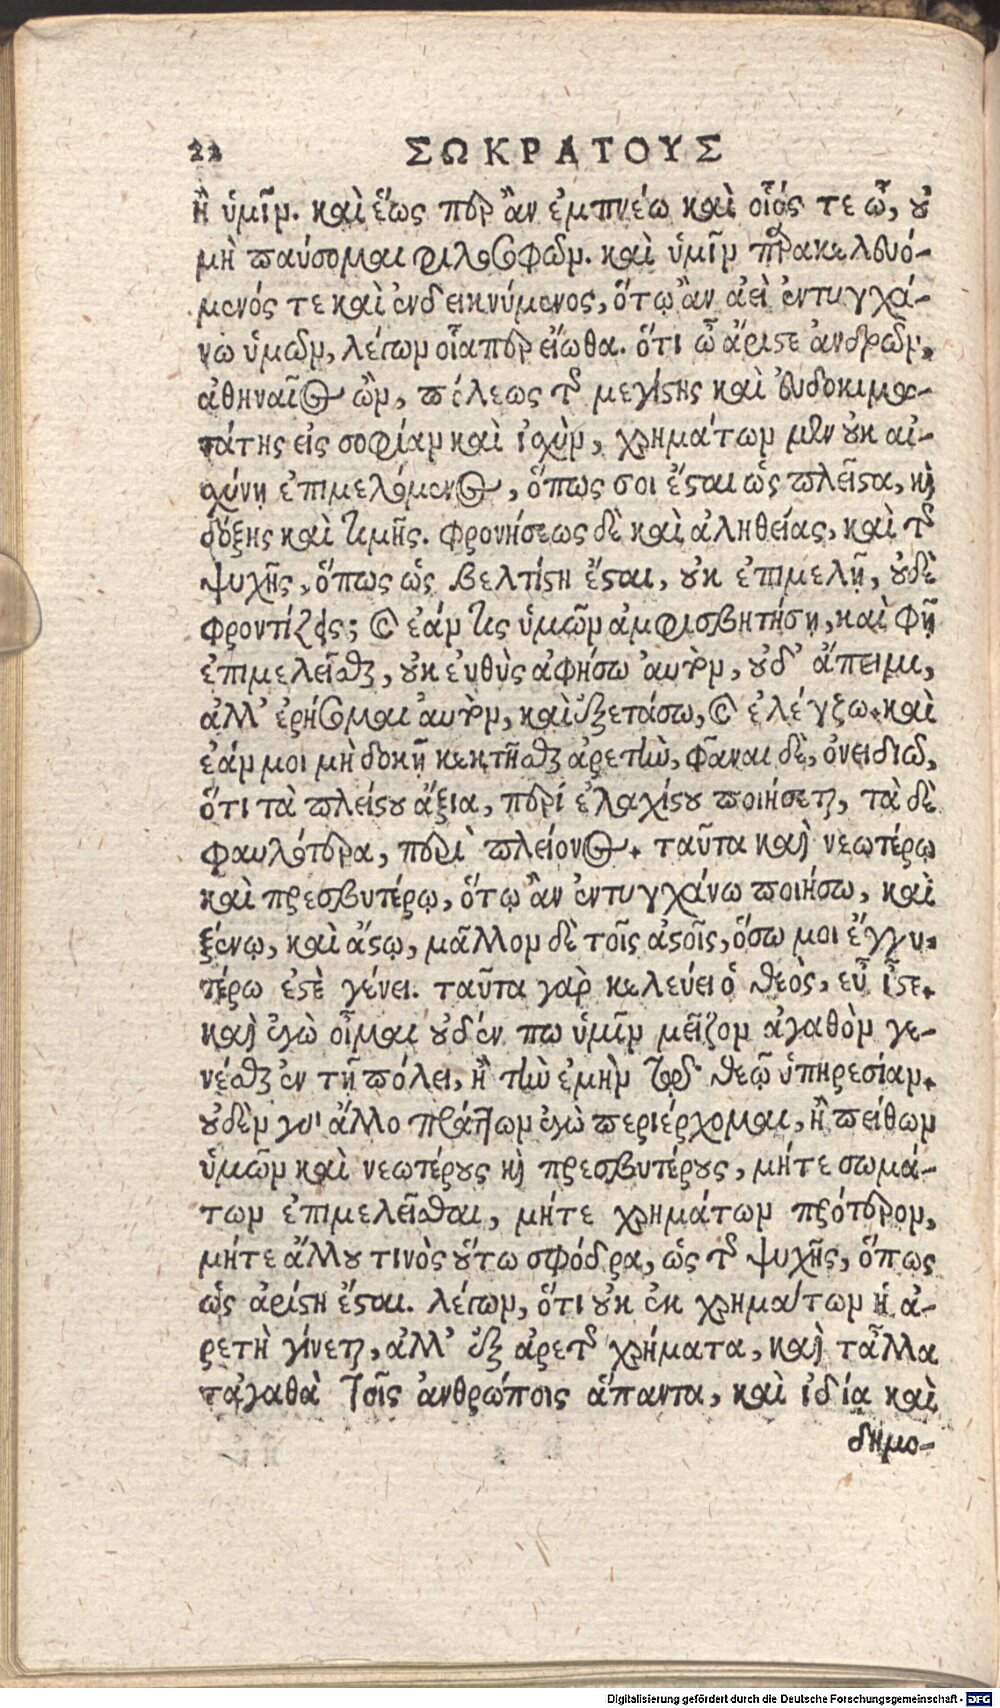 22 ΣΩΚΡΑΤΟΥΣ
ἢ ὑμῖν. καὶ ἕως περ ἂν ἐμπνέω καὶ οἷός τε ὦ, οὐ
μὴ παύσομαι φιλοσοφῶν. καὶ ὑμῖν παρακελευό-
μενός τε καὶ ἐνδεικνύμενος, ὅτῳ ἂν ἀεὶ ἐντυγχά-
νω ὑμῶν, λέγων οἷαπερ εἴωθα. ὅτι ὦ ἄριστε ἀνδρῶν,
ἀθηναῖος ὢν, πόλεως τῆς μεγίστης καὶ εὐδοκιμω-
τάτης εἰς σοφίαν καὶ ἰσχὺν, χρημάτων μὲν οὐκ αἰ-
σχύνῃ ἐπιμελόμενος, ὅπως σοι ἔσται ὡς πλεῖστα, καὶ
δόξης καὶ τιμῆς. φρονήσεως δὲ καὶ ἀληθείας, καὶ τῆς
ψυχῆς, ὅπως ὡς βελτίστη ἔσται, οὐκ ἐπιμελῇ, οὐδὲ
φροντίζεις; καὶ ἐάν τις ὑμῶν ἀμφισβητήσῃ, καὶ φῇ
ἐπιμελεῖσθαι, οὐκ εὐθὺς ἀφήσω αὐτὸν, οὐδ' ἄπειμι,
ἀλλ' ἐρήσομαι αὐτὸν, καὶ ἐξετάσω, καὶ ἐλέγξω. καὶ
ἐάν μοι μὴ δοκῇ κεκτῆσθαι ἀρετὴν, φάναι δὲ, ὀνειδιῶ,
ὅτι τὰ πλείστου ἄξια, περί ἐλαχίστου ποιήσεται, τὰ δὲ
φαυλότερα, περὶ πλείονος. ταῦτα καὶ νεωτέρῳ
καὶ πρεσβυτέρῳ, ὅτῳ ἂν ἐντυγχάνω ποιήσω, καὶ
ξένῳ, καὶ ἀστῷ, μᾶλλον δὲ τοῖς ἀστοῖς, ὅσω μοι ἐγγυ-
τέρω ἐστὲ γένει. ταῦτα γὰρ κελεύει ὁ θεὸς, εὖ ἴστε.
καὶ ἐγὼ οἶμαι οὐδέν πω ὑμῖν μεῖζον ἀγαθὸν γε-
νέσθαι ἐν τῇ πόλει, ἢ τὴν ἐμὴν τῷ θεῷ ὑπηρεσίαν.
οὐδὲν γὰρ ἄλλο πράττων ἐγὼ περιέρχομαι, ἢ πείθων
ὑμῶν καὶ νεωτέρους καὶ πρεσβυτέρους, μήτε σωμά-
των ἐπιμελεῖσθαι, μήτε χρημάτων πρότερον,
μήτε ἄλλου τινὸς οὕτω σφόδρα, ὡς τῆς ψυχῆς, ὅπως
ὡς ἀρίστη ἔσται. λέγων, ὅτι οὐκ ἐκ χρημάτων ἡ ἀ-
ρετὴ γίνεται, ἀλλ' ἐξ ἀρετῆς χρήματα, καὶ τἆλλα
τἀγαθὰ τοῖς ἀνθρώποις ἅπαντα, καὶ ἰδίᾳ καὶ
δημο-
Digitalisierung gefördert durch die Deutsche Forschungsgemeinschaft - DFG